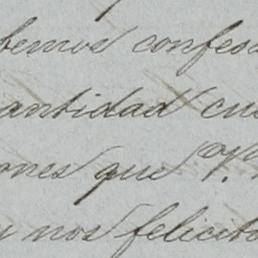 bemos confes
antidad cu
ones que V.
nos felicita